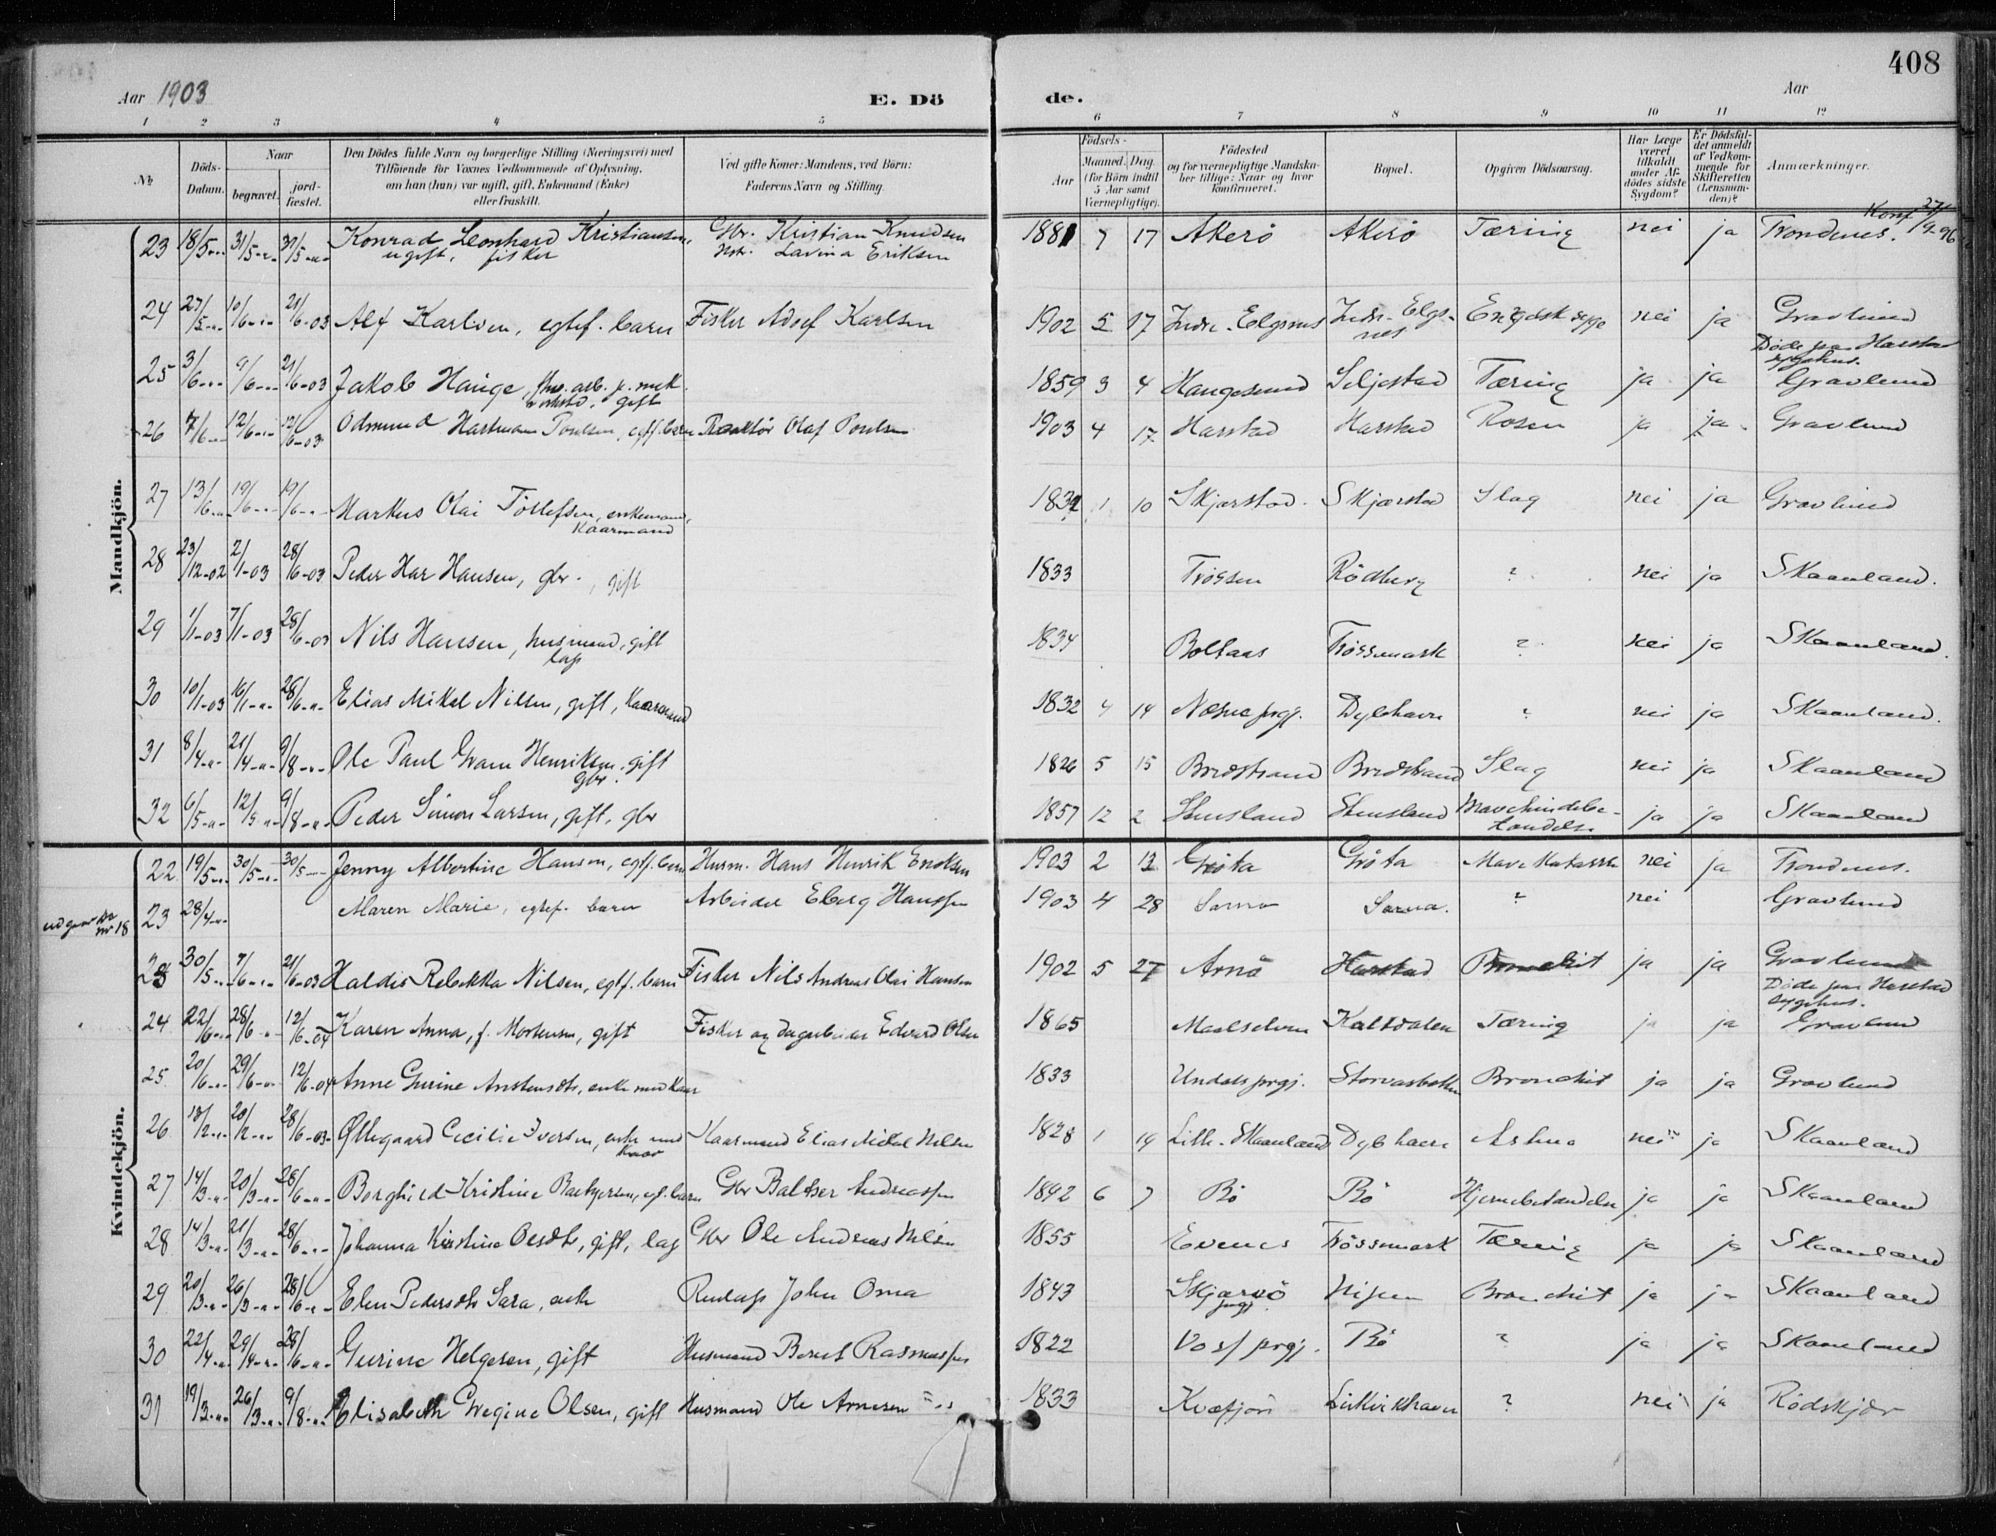 408
Aar 1903 E. Dö de. Aar
1 2 3 4 5 6 7 8 9 10 11 12
No. Döds-Datum. Naar begravet. jordfæstet. Den Dödes fulde Navn og borgerlige Stilling (Næringsvei) med Tilföiende for Voxnes Vedkommende af Oplysning, om han (hun) var ugift, gift, Enkemand (Enke) eller fraskilt. Ved gifte Koner: Mandens, ved Börn: Faderens Navn og Stilling. Födsels- Aar Maaned. Dag. (for Börn indtil 5 Aar samt Værnepligtige). Födested og for værnepligtige Mandskaber tillige: Naar og hvor konfirmeret. Bopæl. Opgiven Dödsaarsag. Har Læge været tilkaldt under Afdödes sidste Sygdom? Er Dödsfaldet anmeldt af Vedkommende for Skifteretten (Lensmanden)? Anmærkninger.
Mandkjön.
23 18/5 31/5 31/5 Konrad Leonhard Kristiansen, ugift, fisker Gbr. Kristian Knudsen Hstr. Lavina Eriksen 1881 7 17 Akerö Akerö Tæring nei ja Trondenes. Konf 27/9-96
24 27/5 10/6 21/6-03 Alf Karlsen, egtef. barn Fisker Adolf Karlsen 1902 5 17 Indre-Elgsnes Indr-Elgsnes Engelsk syge nei ja Gravlund
25 3/6 9/6 21/6-03 Jakob Hauge, arb. p. mek. verksted, gift 1859 3 4 Haugesund Seljestad Tæring ja ja Döde paa Harstad sygehus. Gravlund
26 7/6 12/6 12/6-03 Odmund Hartmann Poulsen, egtf. barn Redaktör Olaf Poulsen 1903 4 17 Harstad Harstad Rosen ja ja Gravlund
27 13/6 19/6 19/6 Markus Olai Töllefsen, enkemand, Kaarmand 1832 1 10 Skjærstad Skjærstad Slag nei ja Gravlund
28 23/12-02 2/1-03 28/6-03 Peder Har Hansen, gbr., gift 1833 Trössen Rödberg ? nei ja Skaanland.
29 1/1-03 7/1-03 28/6-03 Nils Hansen, husmand, gift lap 1834 Boltaas Trössemark ? nei ja Skaanland.
30 10/1-03 16/1 28/6 Elias Mikal Nilsen, gift, Kaarmand 1832 4 14 Næsne prgj. Dylehavn ? nei ja Skaanland.
31 8/4 21/4 9/8 Ole Paul Gram Henriksen, gift gbr. 1826 5 15 Bredstrand Bredstrand Slag nei ja Skaanland
32 6/5 12/5 9/8 Peder Simon Larsen, gift, gbr 1857 12 2 Stensland Stensland ja ja Skaanland
Kvindekjön.
22 19/5 30/5 30/5 Jenny Albertine Hansen, egtf. barn Husm. Hans Henrik Enoksen 1903 2 13 Gröta Gröta Mave Katarrh nei ja Trondenes.
udgaar nr 18 23 28/4 Maren Marie, egtef. barn Arbeider Eberg Hanssen 1903 4 28 Sama Sama. ? nei Gravlund
23 30/5 7/6 21/6-03 Haldis Rebekka Nilsen, egtf. barn Fisker Nils Andreas Olai Hansen 1902 5 27 Arnö Harstad Bronchit ja ja Gravlund
24 22/6 28/6 12/6-04 Karen Anna, f. Mortensen, gift Fisker og dagarbeider Edvard Olsen 1865 Maalselven Kaltdalen Tæring ja ja Döde paa Harstad sygehus. Gravlund
25 20/6 29/6 12/6-04 Anne Gurine Anstensdtr, enke med Kaar 1833 Undals prgj. Storvasbotten Bronchit ja ja Gravlund
26 13/2 20/2 28/6-03 Ollegaard Cecilie Iversen, enke med Kaar Kaarmand Elias Mikal Nilsen 1828 1 19 Lille-Skaanland Dylehavn Astma nei ja Skaanland
27 14/3 20/3 28/6 Borghild Kristine Baltzersen, egt. barn Gbr Baltser Andreassen 1892 6 7 Bö Bö Hjernebetændelse ja ja Skaanland
28 14/3 21/3 28/6 Johanna Kirstine Olesdtr, gift, lap Gbr Ole Andreas Nilsen 1855 Evenes Trössemark Tæring ja ja Skaanland
29 20/3 26/3 28/6 Elen Pedersdtr Sara, enke John Oma 1843 Skjærvö prgj. Bronchit ja ja Skaanland
30 22/4 29/4 28/6 Gurine Helgesen, gift Husmand Bernt Rasmussen 1822 Voss prgj. Bö ? ja ja Skaanland
31 19/3 26/3 9/8 Elisabeth Gregine Olsen, gift Husmand Ole Arnesen 1833 Kvæfjord ? nei ja Rödskjær